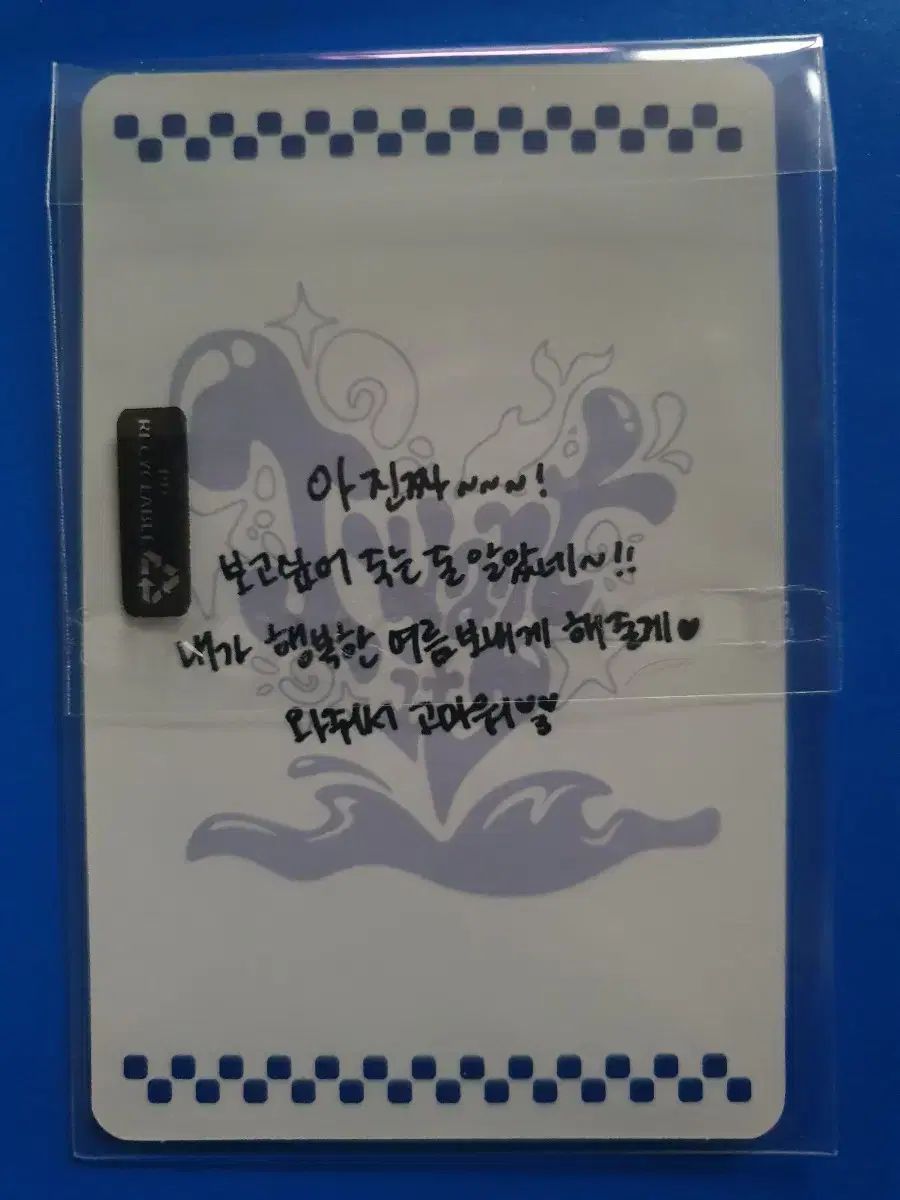 아 진짜~~~!
보고싶어 죽는 줄 알았네~!!
내가 행복한 여름보내게 해줄게♥
와줘서 고마워♥
PP
RECYCLABLE
I WANT